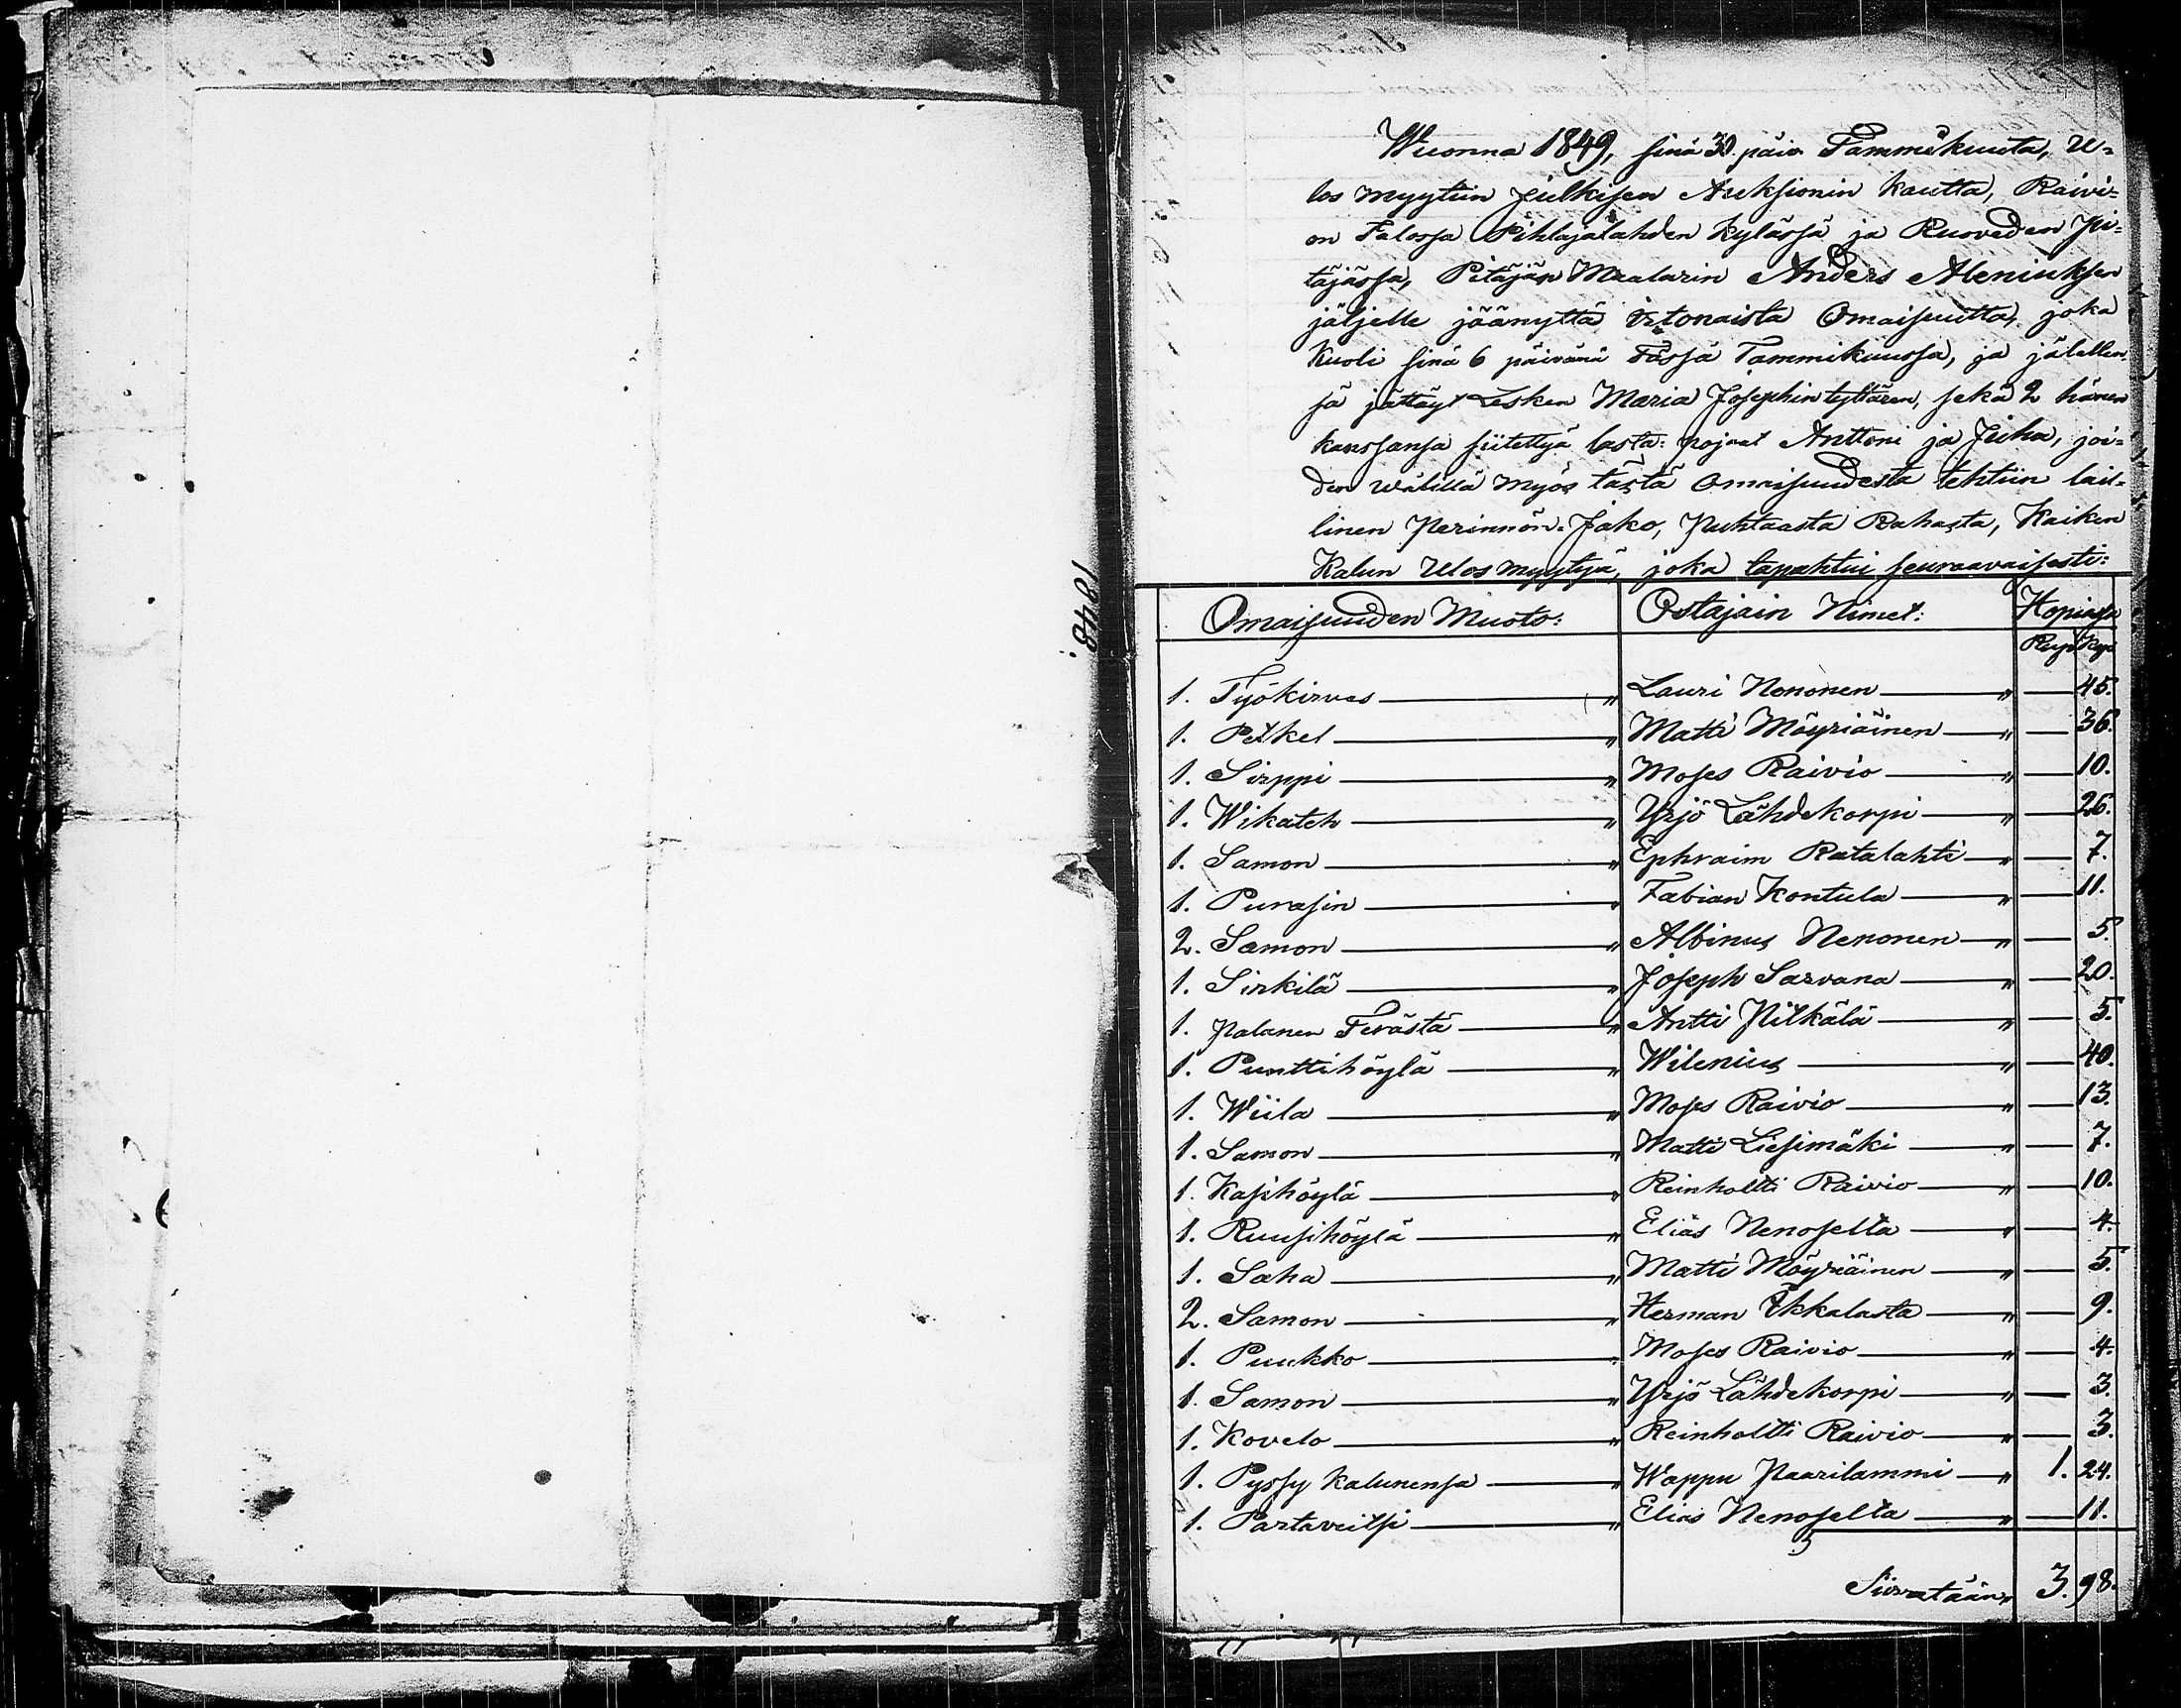 1848.
Wuonna 1849, sinä 30. päiv. Tammikuuta, U-
los myytiin Julkisen Auksionin kautta, Raivi-
on Talossa Pihlajalahden Kylässä ja Ruoveden Pi-
täjässä, Pitäjän Maalarin Anders Aleniuksen
jäljelle jäänyttä irtonaista Omaisuutta, joka
Kuoli sinä 6 päivänä Tässä Tammikuussa, ja jälellen-
sä jättäyt Lesken Maria Josephin tyttären, sekä 2 hänen
kanssansa siitettyä lasta: pojaat Anttoni ja Juha, joi-
den wälillä myös tästä omaisuudesta tehtiin lail-
linen Perinnön-Jako, Puhtaasta Rahasta, Kaiken
Kalun Ulos myytyä, joka tapahtui seuraavaisesti:
Omaisuuden Muoto: Ostajain Nimet: Hopiassa
Rup. Kop.
1. Työkirves " Lauri Nononen " — 45.
1. Petkel " Matti Möyriäinen " — 36.
1. Sirppi " Moses Raivio " — 10.
1. Wikateh " Yrjö Lähdekorpi " — 26.
1. Samon " Ephraim Ratalahti " — 7.
1. Purasin " Fabian Kontula " — 11.
2. Samon " Albinus Nenonen " — 5.
1. Sirkilä " Joseph Sarvana " — 20.
1. Palanen Terästä " Antti Pitkälä " — 5.
1. Punttihöylä " Wilenius " — 40.
1. Wiila " Moses Raivio " — 13.
1. Samon " Matti Liesimäki " — 7.
1. Kasihöylä " Reinholtti Raivio " — 10.
1. Ruusihöylä " Elias Nenoselta " — 4.
1. Saha " Matti Möyriäinen " — 5.
2. Samon " Herman Ukkalasta " — 9.
1. Puukko " Moses Raivio " — 4.
1. Samon " Yrjö Lähdekorpi " — 3.
1. Kovelo " Reinholtti Raivio " — 3.
1. Pyssy kalunensa " Wappu Paarilammi " 1. 24.
1. Partaveitsi " Elias Nenoselta " — 11.
Siirretään 3. 98.